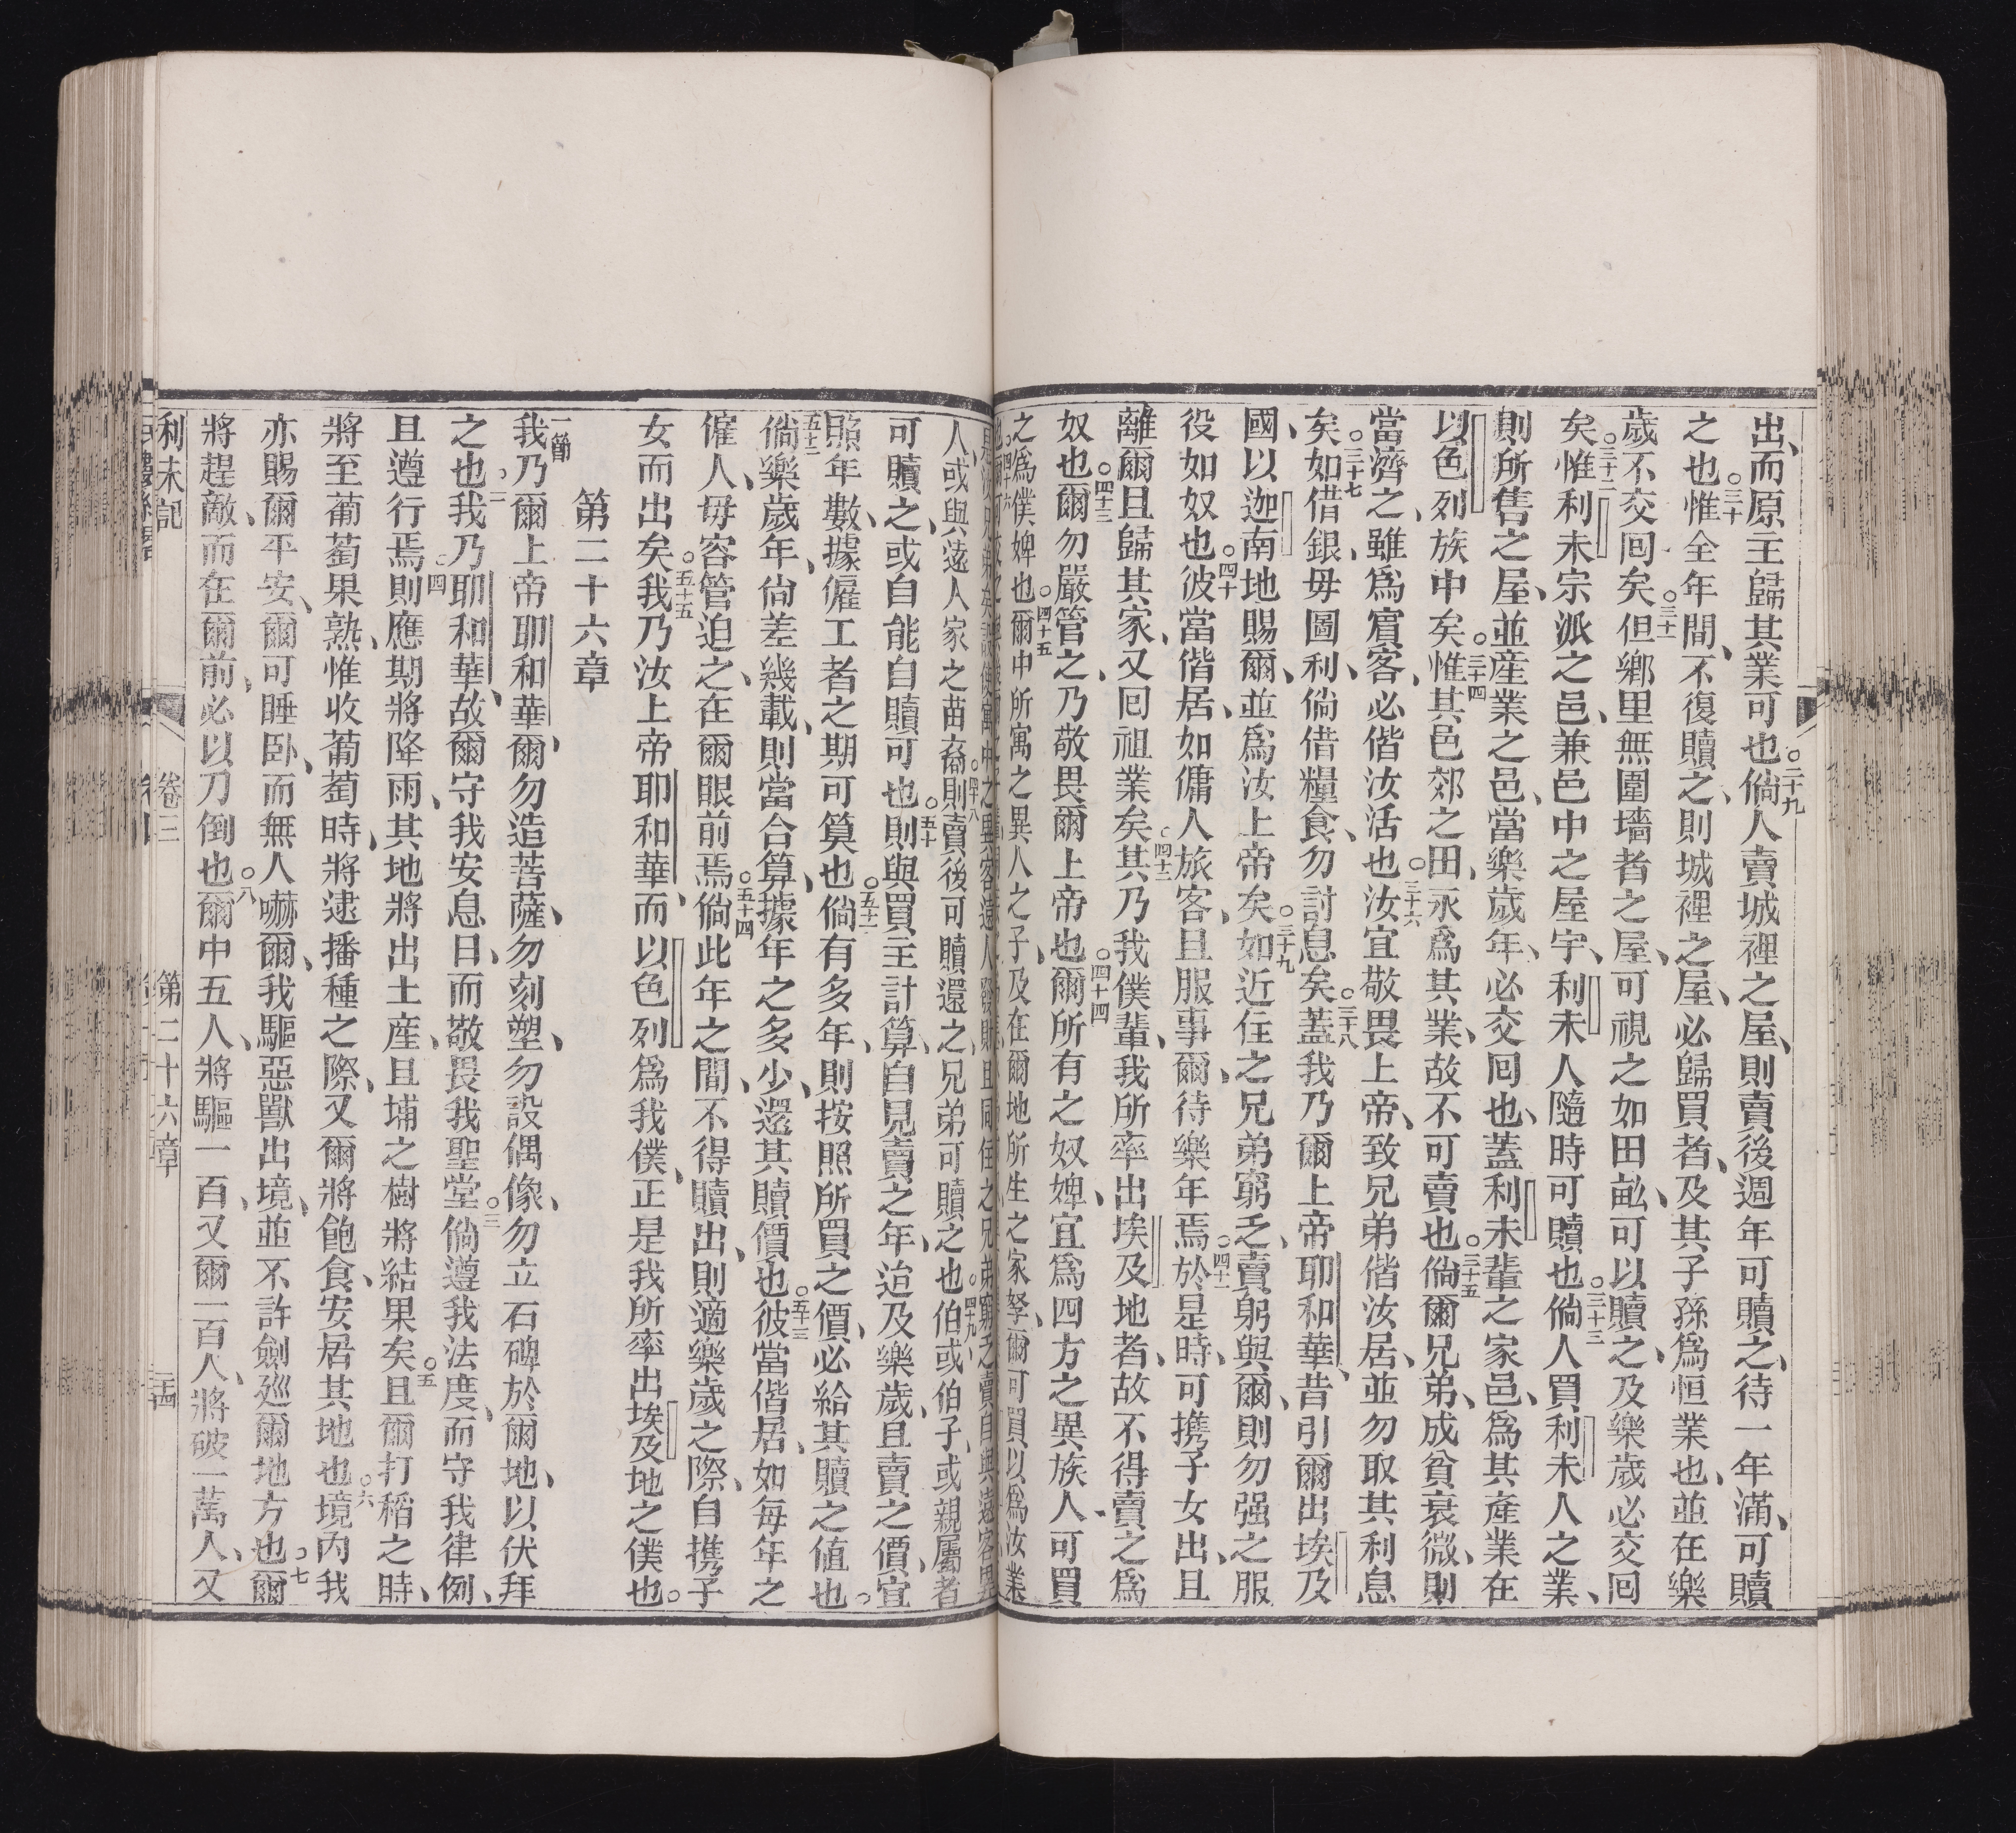 出、而原主歸其業可也○二十九倘人賣城裡之屋、則賣後週年可贖之、待一年滿、可贖
之也○三十惟全年間、不復贖之、則城裡之屋、必歸買者、及其子孫爲恒業也、並在樂
歲不交囘矣○三十一但鄉里無圍墻者之屋、可視之如田畝、可以贖之、及樂歲必交囘
矣○三十二惟利未宗派之邑、兼邑中之屋宇、利未人隨時可贖也○三十三倘人買利未人之業、
則所售之屋、並產業之邑、當樂歲年、必交囘也、蓋利未輩之家邑、爲其產業在
以色列族中矣○三十四惟其邑郊之田、永爲其業、故不可賣也○三十五倘爾兄弟、成貧衰微、則
當濟之、雖爲賓客、必偕汝活也○三十六汝宜敬畏上帝、致兄弟偕汝居、並勿取其利息
矣○三十七如借銀、毋圖利、倘借糧食、勿討息矣○三十八蓋我乃爾上帝耶和華、昔引爾出埃及
國、以迦南地賜爾、並爲汝上帝矣○三十九如近住之兄弟窮乏、賣躬與爾、則勿强之服
役如奴也○四十彼當偕居、如傭人旅客、且服事爾、待樂年焉○四十一於是時、可携子女出、且
離爾且歸其家、又囘祖業矣○四十二其乃我僕輩、我所率出埃及地者、故不得賣之爲
奴也○四十三爾勿嚴管之、乃敬畏爾上帝也○四十四爾所有之奴婢、宜爲四方之異族人、可買
之爲僕婢也○四十五爾中所寓之異人之子、及在爾地所生之家孥、爾可買以爲汝業
人、或與遠人家之苗裔○四十八則賣後可贖還之、兄弟可贖之也○四十九伯或伯子、或親屬者
可贖之、或自能自贖可也○五十則與買主計算、自見賣之年、迨及樂歲、且賣之價、宜
照年數、據僱工者之期可算也○五十一倘有多年、則按照所買之價、必給其贖之値也○
五十二倘樂歲年、尙差幾載、則當合算、據年之多少、還其贖價也○五十三彼當偕居、如每年之
僱人、毋容管迫之、在爾眼前焉○五十四倘此年之間、不得贖出、則適樂歲之際、自携子
女而出矣○五十五我乃汝上帝耶和華、而以色列爲我僕、正是我所率出埃及地之僕也○
第二十六章
一節我乃爾上帝耶和華、爾勿造菩薩、勿刻塑、勿設偶像、勿立石碑於爾地、以伏拜
之也○二我乃耶和華、故爾守我安息日、而敬畏我聖堂○三倘遵我法度、而守我律例、
且遵行焉○四則應期將降雨、其地將出土產、且埔之樹將結果矣○五且爾打稻之時、
將至葡萄果熟、惟收葡萄時、將逮播種之際、又爾將飽食、安居其地也○六境內我
亦賜爾平安、爾可睡卧、而無人嚇爾、我驅惡獸出境、並不許劍廵爾地方也○七爾
將趕敵、而在爾前、必以刀倒也○八爾中五人、將驅一百、又爾一百人、將破一萬人、又
利未記 卷三 第二十六章